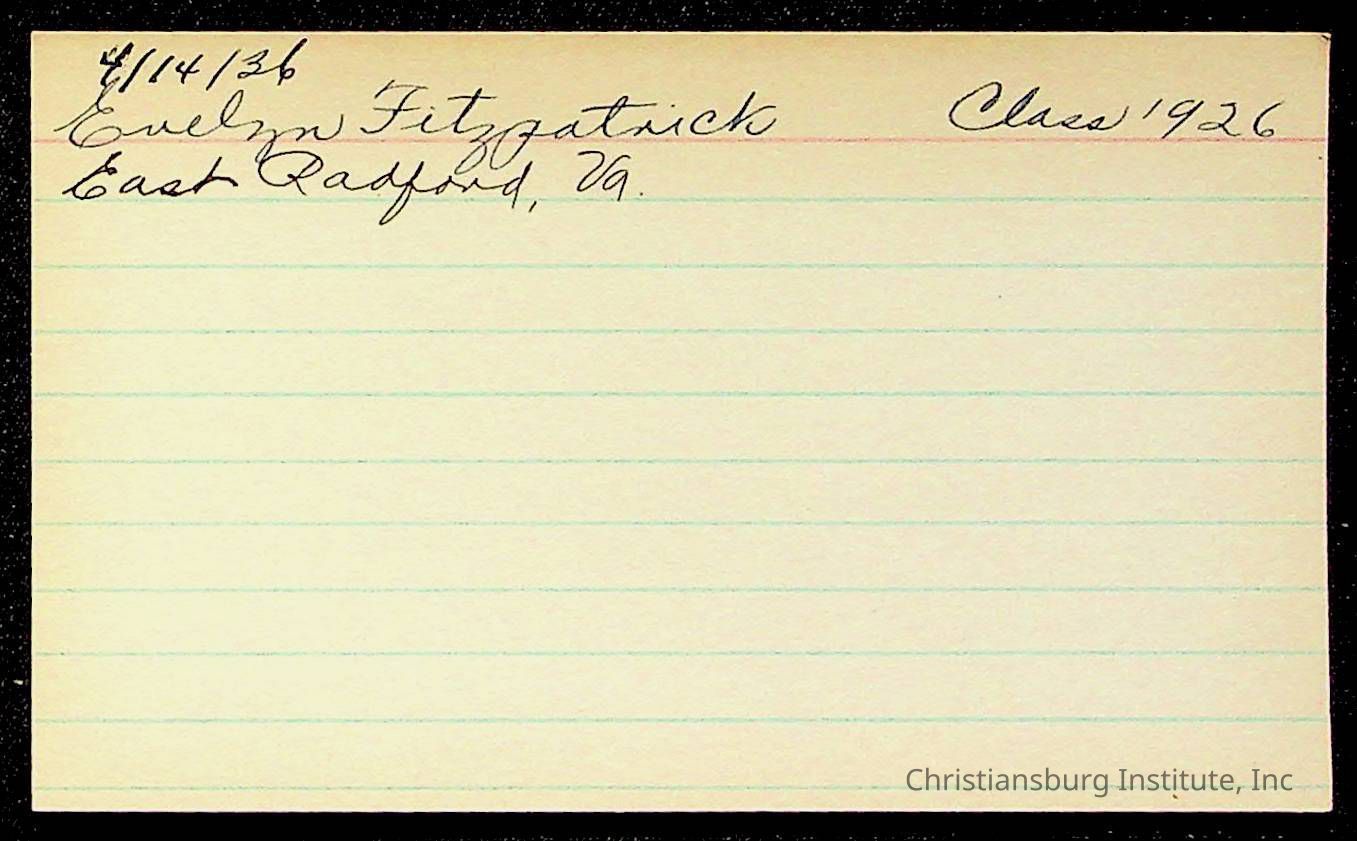 4/14/36
Evelyn Fitzpatrick Class 1926
East Radford, Va.
Christiansburg Institute, Inc